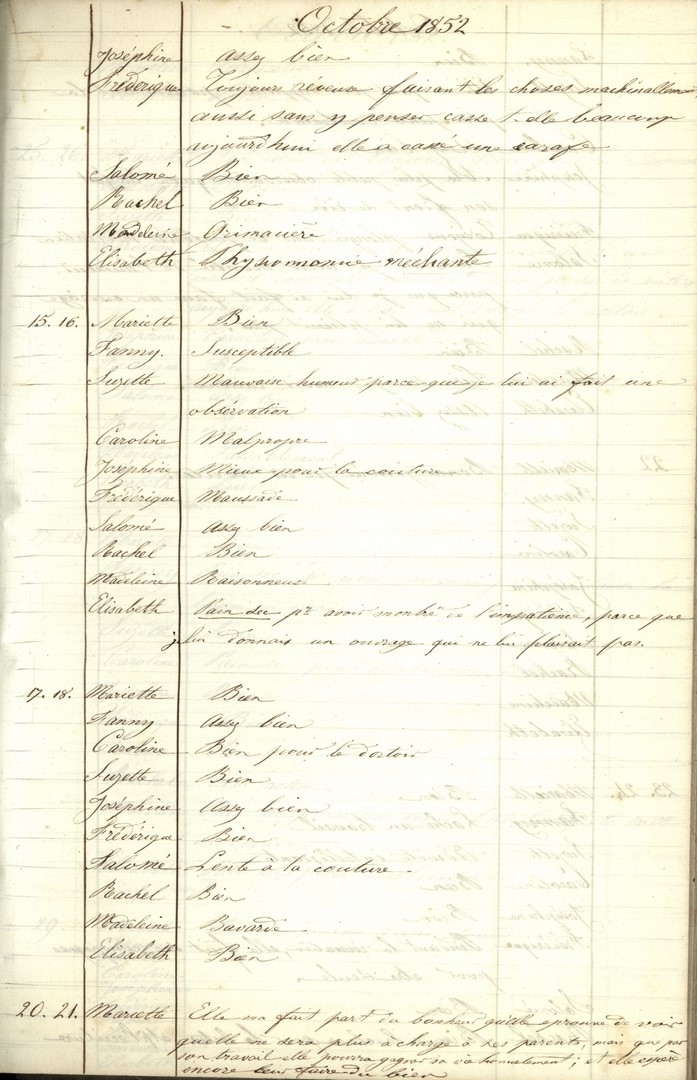 Octobre 1852
Joséphine Assez bien
Fréderique Toujours rêveuse faisant les choses machinallement
aussi sans y penser casse t-elle beaucoup
aujourd'hui elle a cassé une carafe
Salomé Bien
Rachel Bien
Madeleine Grimacière
Elisabeth Physionnomie méchante
15. 16. Mariette Bien
Fanny. Susceptible
Suzette Mauvaise humeur parce que je lui ai fait une
obsérvation
Caroline Malpropre
Joséphine Mieux pour la couture
Fréderique Maussade
Salomé Assez bien
Rachel Bien
Madeleine Raisonneuse
Elisabeth Pain sec pr avoir montré de l'impatience, parce que
je lui donnais un ouvrage qui ne lui plaisait pas.
17. 18. Mariette Bien
Fanny Assez bien
Caroline Bien pour le dortoir
Suzette Bien
Joséphine Assez bien
Fréderique Bien
Salomé Lente à la couture.
Rachel Bien
Madeleine Bavarde
Elisabeth Bien
20. 21. Mariette Elle ma fait part du bonheur qu'elle eprouve de voir
quelle ne sera plus à charge à ses parents, mais que par
son travail elle pourra gagner sa vie honnetement; et elle espère
encore leur faire du bien